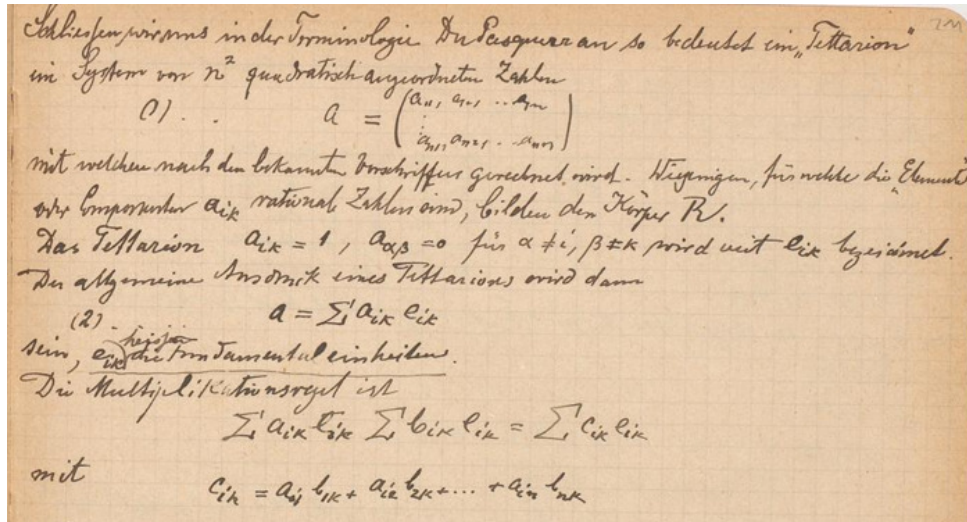 Schliessen wir uns in der Terminologie Du Pasquier an so bedeutet ein „Tettarion"
ein System von n² quadratisch angeordneten Zahlen
(1) . . a = (a₁₁, a₁₂, ... a₁ₙ
⋮
aₙ₁, aₙ₂, ... aₙₙ)
mit welchen nach den bekannten Vorschriften gerechnet wird. Diejenigen, für welche die „Elemente"
oder Componenten aᵢₖ rationale Zahlen sind, bilden den Körper R.
Das Tettarion aᵢₖ = 1, a_αβ = 0 für α ≠ i, β ≠ κ wird mit eᵢₖ bezeichnet.
Der allgemeine Ausdruck eines Tettarions wird dann
(2) . a = ∑ aᵢₖ eᵢₖ
sein, eᵢₖ heissen die Fundamentaleinheiten.
Die Multiplikationsregel ist
∑ aᵢₖ eᵢₖ ∑ bᵢₖ eᵢₖ = ∑ cᵢₖ eᵢₖ
mit
cᵢₖ = aᵢ₁ b₁ₖ + aᵢ₂ b₂ₖ + ... + aᵢₙ bₙₖ